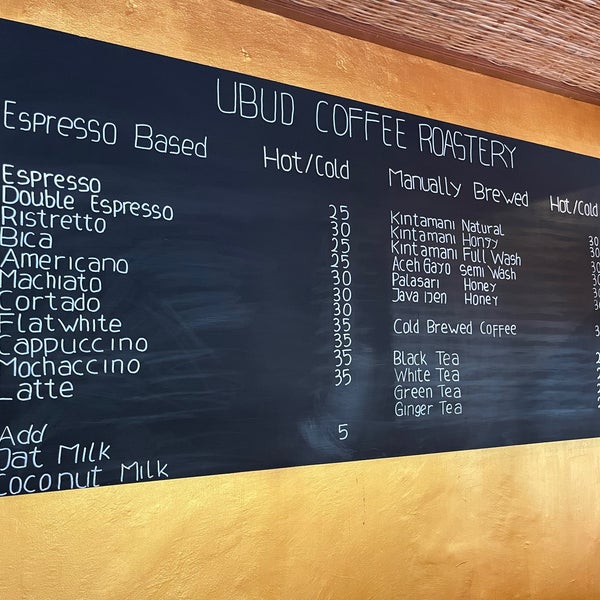 UBUD COFFEE ROASTERY
Espresso Based Hot/Cold
Espresso 25
Double Espresso 30
Ristretto 25
Bica 25
Americano 30
Machiato 30
Cortado 30
Flatwhite 35
Cappuccino 35
Mochaccino 35
Latte 35
Add 5
Oat Milk
Coconut Milk
Manually Brewed Hot/Cold
Kintamani Natural 30
Kintamani Honey 30
Kintamani Full Wash 30
Aceh Gayo Semi Wash 30
Palasari Honey 30
Java Ijen Honey
Cold Brewed Coffee
Black Tea
White Tea
Green Tea
Ginger Tea